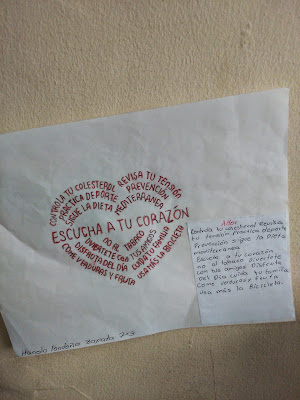 CONTROLA TU COLESTEROL
REVISA TU TENSIÓN
PRACTICA DEPORTE
PREVENCIÓN
SIGUE LA DIETA
MEDITERRANEA
ESCUCHA A TU CORAZÓN
NO AL TABACO
DIVIERTETE CON
TUS AMIGOS
DISFRUTA DEL DÍA
CUIDA TU FAMILIA
COME VERDURAS Y FRUTA
USA MÁS LA BICICLETA
Controla tu colesterol Revisa
tu tensión Practica deporte
Prevención sigue la Dieta
mediterranea
Escucha a tu corazón
no al tabaco diviertete
con tus amigos Disfruta
del Día cuida tu familia
Come verduras y fruta
usa más la Bicicleta.
Zapata